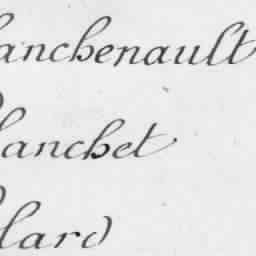 lanchenault
lanchet
lard